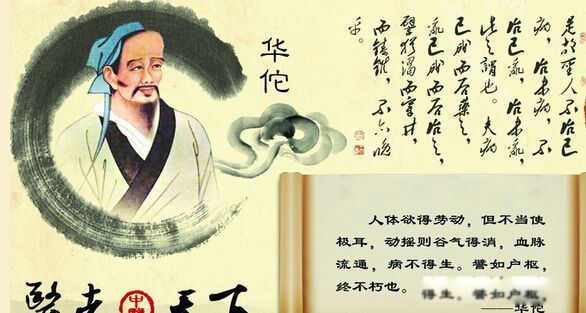 华佗
是故聖人不治已
病，治未病，不
治已亂，治未亂，
此之謂也。夫病
已成而后藥之，
亂已成而后治之，
譬猶渴而穿井，
而鑄錐，不亦晚
乎。
人体欲得劳动，但不当使
极耳，动摇则谷气得消，血脉
流通，病不得生。譬如户枢，
终不朽也。
得生。譬如户枢，
——华佗
天下